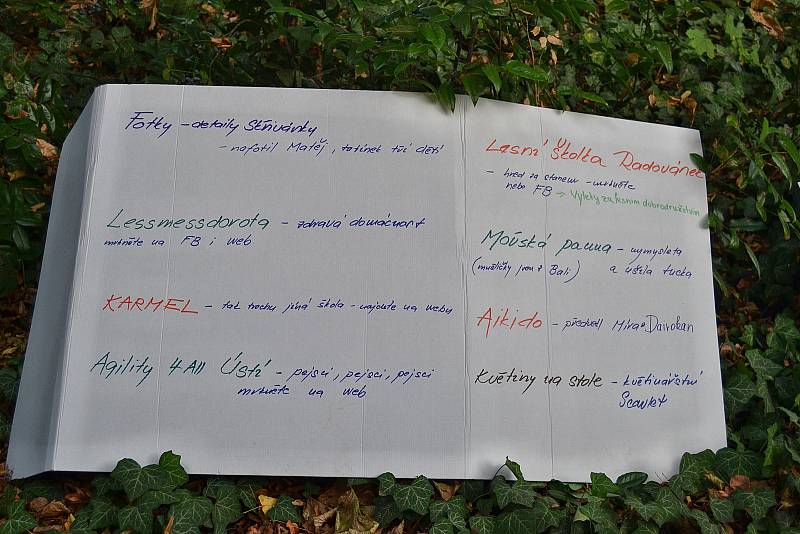 Fotky - detaily Skřivánky
- nafotil Matěj, tatínek tří dětí
Lessmessdorota - zdravá domácnost
mrkněte na FB i web
KARMEL - tak trochu jiná škola - najdete na webu
Agility 4 All Ústí - pejsci, pejsci, pejsci
mrkněte na web
Lesní školka Radovánek
- hned za stanem - mrkněte
nebo FB → Výlety za lesním dobrodružstvím
Mořská panna - vymyslela
(mušličky jsou z Bali) a ušila tucka
Aikido - předvedl Míra Dairokan
Květiny na stole - květinářství
Scarlet